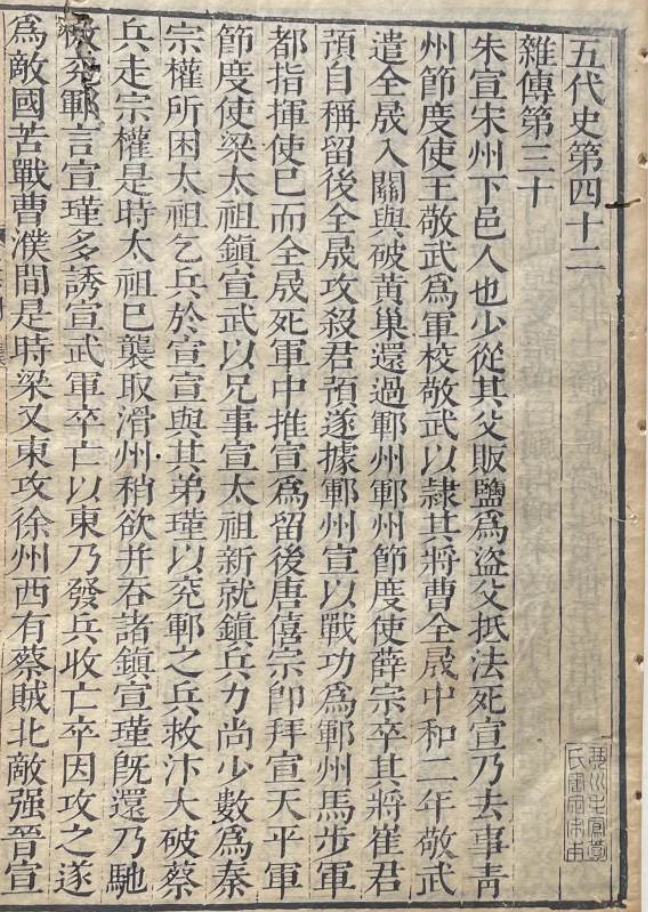 五代史第四十二
雜傳第三十
朱宣宋州下邑人也少從其父販鹽爲盜父抵法死宣乃去事青
州節度使王敬武爲軍校敬武以隷其將曹全晸中和二年敬武
遣全晸入關與破黃巢還過鄆州鄆州節度使薛宗卒其將崔君
預自稱留後全晸攻殺君預遂據鄆州宣以戰功爲鄆州馬步軍
都指揮使已而全晸死軍中推宣爲留後唐僖宗卽拜宣天平軍
節度使梁太祖鎭宣武以兄事宣太祖新就鎭兵力尚少數爲秦
宗權所困太祖乞兵於宣宣與其弟瑾以兖鄆之兵救汴大破蔡
兵走宗權是時太祖已襲取滑州稍欲并吞諸鎭宣瑾旣還乃馳
檄兖鄆言宣瑾多誘宣武軍卒亡以東乃發兵收亡卒因攻之遂
爲敵國苦戰曹濮間是時梁又東攻徐州西有蔡賊北敵强晉宣